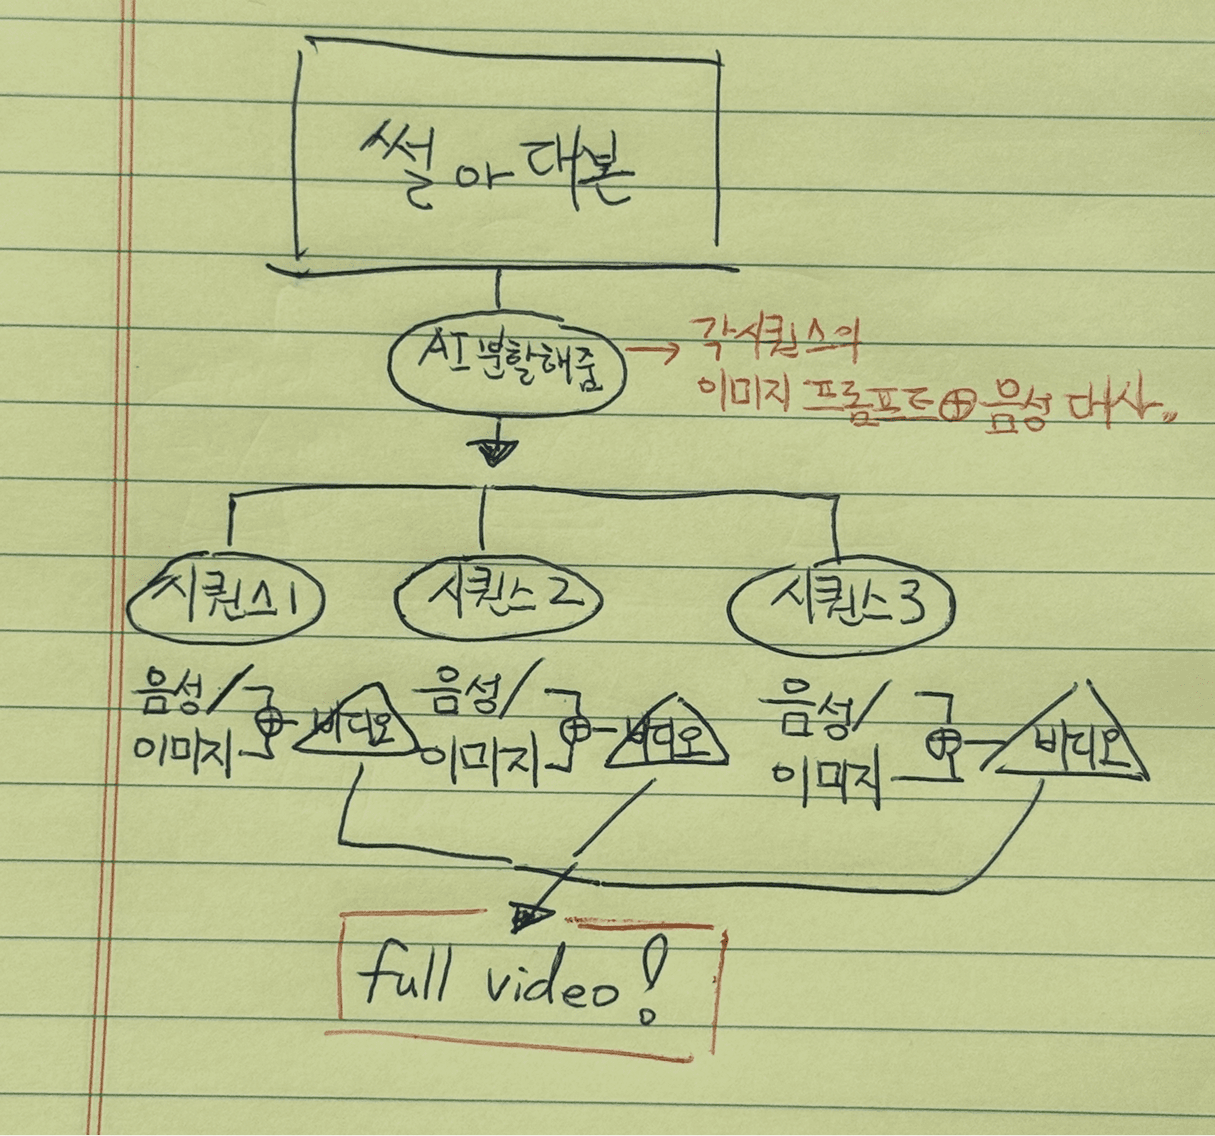 썰아대본
AI 분할해줌
각 시퀀스의
이미지 프롬프트 ⊕ 음성 대사.,
시퀀스1
시퀀스2
시퀀스3
음성/
이미지
⊕
비디오
음성/
이미지
⊕
비디오
음성/
이미지
⊕
비디오
full video!